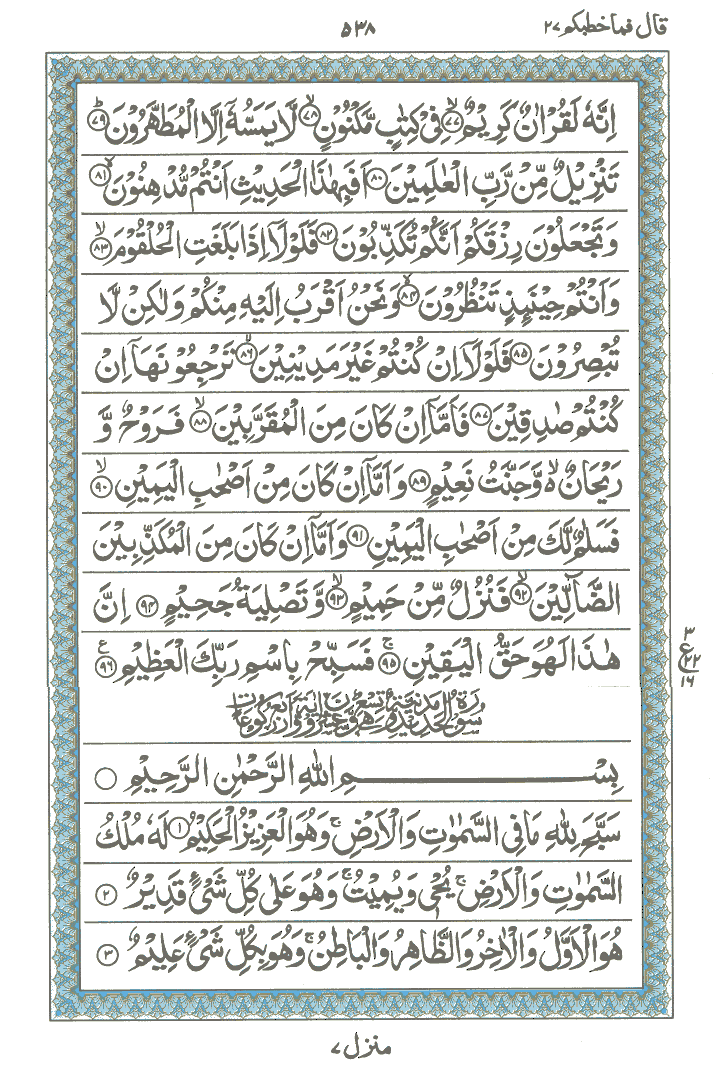 قال فما خطبكم ٢٧
٥٣٨
اِنَّهٗ لَقُرْاٰنٌ كَرِيْمٌ ۙ﴿٧٧﴾ فِيْ كِتٰبٍ مَّكْنُوْنٍ ۙ﴿٧٨﴾ لَّا يَمَسُّهٗۤ اِلَّا الْمُطَهَّرُوْنَ ؕ﴿٧٩﴾
تَنْزِيْلٌ مِّنْ رَّبِّ الْعٰلَمِيْنَ ﴿٨٠﴾ اَفَبِهٰذَا الْحَدِيْثِ اَنْتُمْ مُّدْهِنُوْنَ ۙ﴿٨١﴾
وَتَجْعَلُوْنَ رِزْقَكُمْ اَنَّكُمْ تُكَذِّبُوْنَ ﴿٨٢﴾ فَلَوْلَاۤ اِذَا بَلَغَتِ الْحُلْقُوْمَ ۙ﴿٨٣﴾
وَاَنْتُمْ حِيْنَئِذٍ تَنْظُرُوْنَ ۙ﴿٨٤﴾ وَنَحْنُ اَقْرَبُ اِلَيْهِ مِنْكُمْ وَلٰكِنْ لَّا
تُبْصِرُوْنَ ﴿٨٥﴾ فَلَوْلَاۤ اِنْ كُنْتُمْ غَيْرَ مَدِيْنِيْنَ ۙ﴿٨٦﴾ تَرْجِعُوْنَهَاۤ اِنْ
كُنْتُمْ صٰدِقِيْنَ ﴿٨٧﴾ فَاَمَّاۤ اِنْ كَانَ مِنَ الْمُقَرَّبِيْنَ ۙ﴿٨٨﴾ فَرَوْحٌ وَّ
رَيْحَانٌ ۙ۬ وَّجَنَّتُ نَعِيْمٍ ﴿٨٩﴾ وَاَمَّاۤ اِنْ كَانَ مِنْ اَصْحٰبِ الْيَمِيْنِ ۙ﴿٩٠﴾
فَسَلٰمٌ لَّكَ مِنْ اَصْحٰبِ الْيَمِيْنِ ﴿٩١﴾ وَاَمَّاۤ اِنْ كَانَ مِنَ الْمُكَذِّبِيْنَ
الضَّآلِّيْنَ ۙ﴿٩٢﴾ فَنُزُلٌ مِّنْ حَمِيْمٍ ۙ﴿٩٣﴾ وَّتَصْلِيَةُ جَحِيْمٍ ﴿٩٤﴾ اِنَّ
هٰذَا لَهُوَ حَقُّ الْيَقِيْنِ ۚ﴿٩٥﴾ فَسَبِّحْ بِاسْمِ رَبِّكَ الْعَظِيْمِ ﴿٩٦﴾ ع
٣
ع ٢٢
١٦
سُوْرَةُ الْحَدِيْدِ مَدَنِيَّةٌ وَّهِيَ تِسْعٌ وَّعِشْرُوْنَ اٰيَةً وَّاَرْبَعُ رُكُوْعَاتٍ
بِسْمِ اللهِ الرَّحْمٰنِ الرَّحِيْمِ
سَبَّحَ لِلّٰهِ مَا فِي السَّمٰوٰتِ وَالْاَرْضِ ۚ وَهُوَ الْعَزِيْزُ الْحَكِيْمُ ﴿١﴾ لَهٗ مُلْكُ
السَّمٰوٰتِ وَالْاَرْضِ ۚ يُحْيٖ وَيُمِيْتُ ۚ وَهُوَ عَلٰى كُلِّ شَيْءٍ قَدِيْرٌ ﴿٢﴾
هُوَ الْاَوَّلُ وَالْاٰخِرُ وَالظَّاهِرُ وَالْبَاطِنُ ۚ وَهُوَ بِكُلِّ شَيْءٍ عَلِيْمٌ ﴿٣﴾
منزل ٧